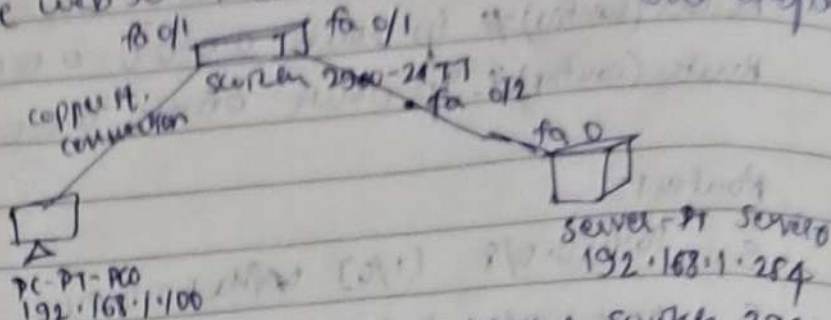 fa 0/1
fa 0/1
switch 2960-24TT
fa 0/2
copper st.
connection
fa 0
Server-PT Server0
192.168.1.254
PC-PT-PC0
192.168.1.100